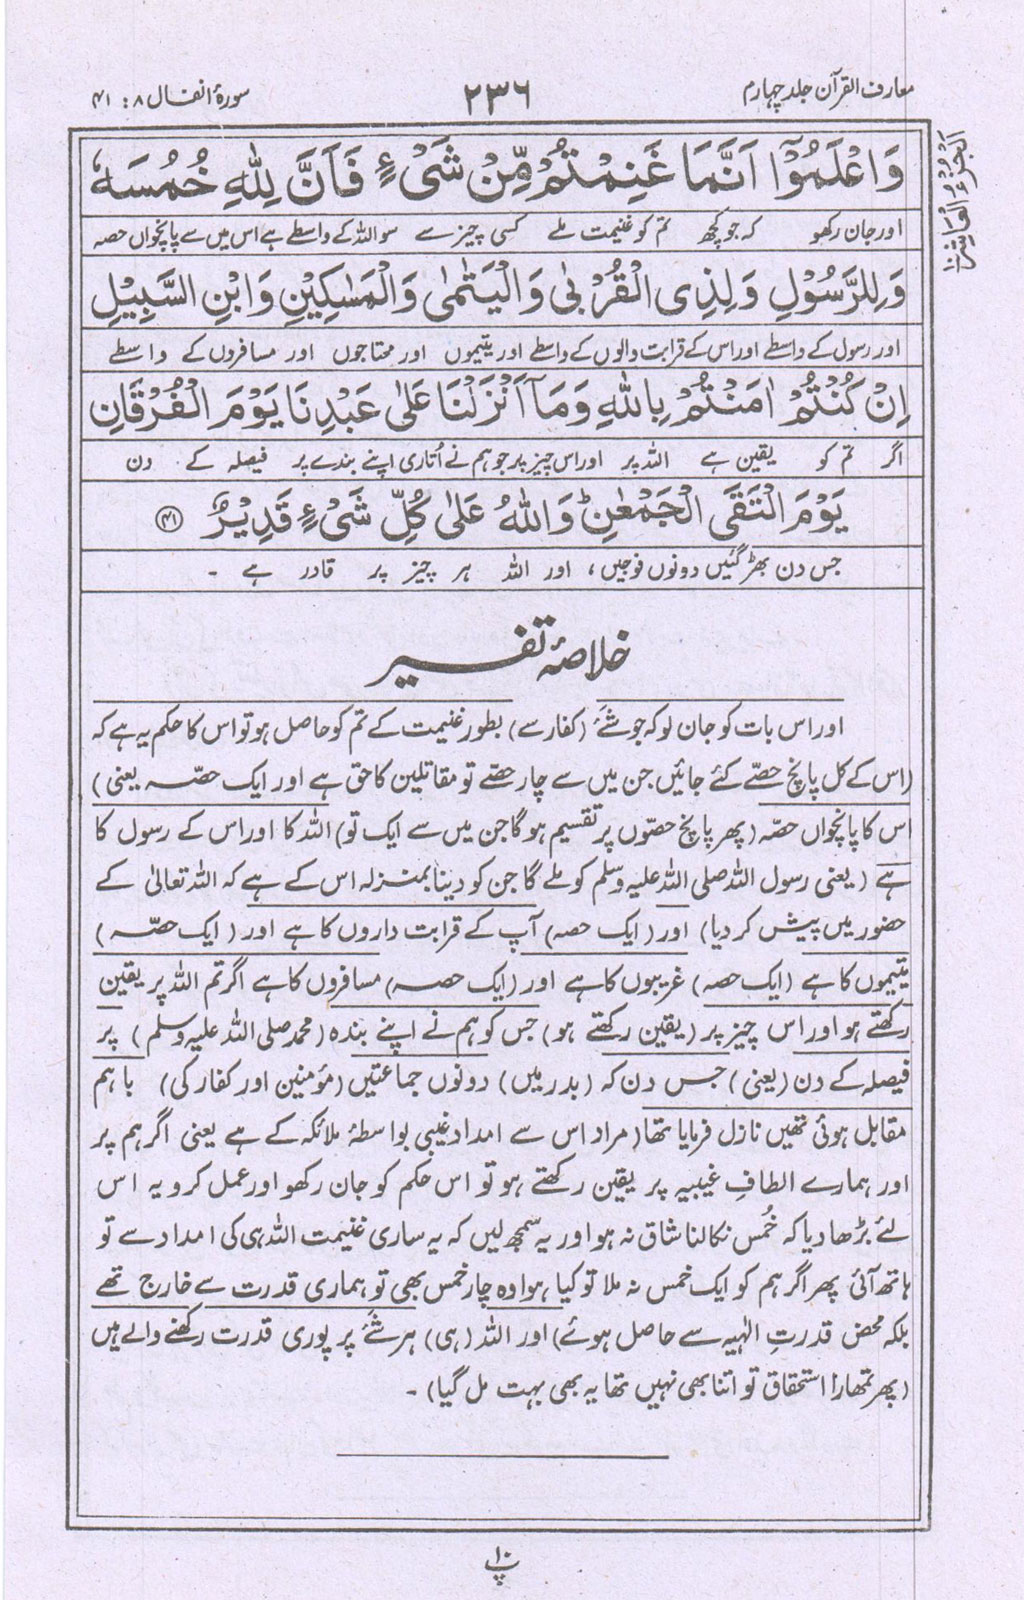 معارف القرآن جلد چہارم
۲۳۶
سورۂ انفال ۸: ۴۱
اَلْجُزْءُ الْعَاشِرُ ۱۰
وَاعْلَمُوْٓا اَنَّمَا غَنِمْتُمْ مِّنْ شَیْءٍ فَاَنَّ لِلّٰهِ خُمُسَهٗ
اور جان رکھو کہ جو کچھ تم کو غنیمت ملے کسی چیز سے سو اللہ کے واسطے ہے اس میں سے پانچواں حصہ
وَلِلرَّسُوْلِ وَلِذِی الْقُرْبٰی وَالْیَتٰمٰی وَالْمَسٰکِیْنِ وَابْنِ السَّبِیْلِ
اور رسول کے واسطے اور اس کے قرابت والوں کے واسطے اور یتیموں اور محتاجوں اور مسافروں کے واسطے
اِنْ کُنْتُمْ اٰمَنْتُمْ بِاللّٰهِ وَمَآ اَنْزَلْنَا عَلٰی عَبْدِنَا یَوْمَ الْفُرْقَانِ
اگر تم کو یقین ہے اللہ پر اور اس چیز پر جو ہم نے اُتاری اپنے بندے پر فیصلہ کے دن
یَوْمَ الْتَقَی الْجَمْعٰنِ ؕ وَاللّٰهُ عَلٰی کُلِّ شَیْءٍ قَدِیْرٌ ﴿۴۱﴾
جس دن بھڑ گئیں دونوں فوجیں، اور اللہ ہر چیز پر قادر ہے ۔
خلاصۂ تفسیر
اور اس بات کو جان لو کہ جو شئے (کفار سے) بطور غنیمت کے تم کو حاصل ہو تو اس کا حکم یہ ہے کہ
(اس کے کل پانچ حصّے کئے جائیں جن میں سے چار حصّے تو مقاتلین کا حق ہے اور ایک حصّہ یعنی)
اس کا پانچواں حصّہ (پھر پانچ حصّوں پر تقسیم ہوگا جن میں سے ایک تو) اللہ کا اور اس کے رسول کا
ہے (یعنی رسول اللہ صلی اللہ علیہ وسلم کو ملے گا جن کو دینا بمنزلہ اس کے ہے کہ اللہ تعالیٰ کے
حضور میں پیش کردیا) اور (ایک حصہ) آپ کے قرابت داروں کا ہے اور (ایک حصّہ)
یتیموں کا ہے (ایک حصہ) غریبوں کا ہے اور (ایک حصہ) مسافروں کا ہے اگر تم اللہ پر یقین
رکھتے ہو اور اس چیز پر (یقین رکھتے ہو) جس کو ہم نے اپنے بندہ (محمد صلی اللہ علیہ وسلم) پر
فیصلہ کے دن (یعنی) جس دن کہ (بدر میں) دونوں جماعتیں (مؤمنین اور کفار کی) باہم
مقابل ہوئی تھیں نازل فرمایا تھا (مراد اس سے امداد غیبی بواسطۂ ملائکہ کے ہے یعنی اگر ہم پر
اور ہمارے الطافِ غیبیہ پر یقین رکھتے ہو تو اس حکم کو جان رکھو اور عمل کرو یہ اس
لئے بڑھا دیا کہ خُمس نکالنا شاق نہ ہو اور یہ سمجھ لیں کہ یہ ساری غنیمت اللہ ہی کی امداد سے تو
ہاتھ آئی پھر اگر ہم کو ایک خمس نہ ملا تو کیا ہوا وہ چار خمس بھی تو ہماری قدرت سے خارج تھے
بلکہ محض قدرتِ الٰہیہ سے حاصل ہوئے) اور اللہ (ہی) ہر شئے پر پوری قدرت رکھنے والے ہیں
(پھر تمھارا استحقاق تو اتنا بھی نہیں تھا یہ بھی بہت مل گیا) ۔
پ ۱۰